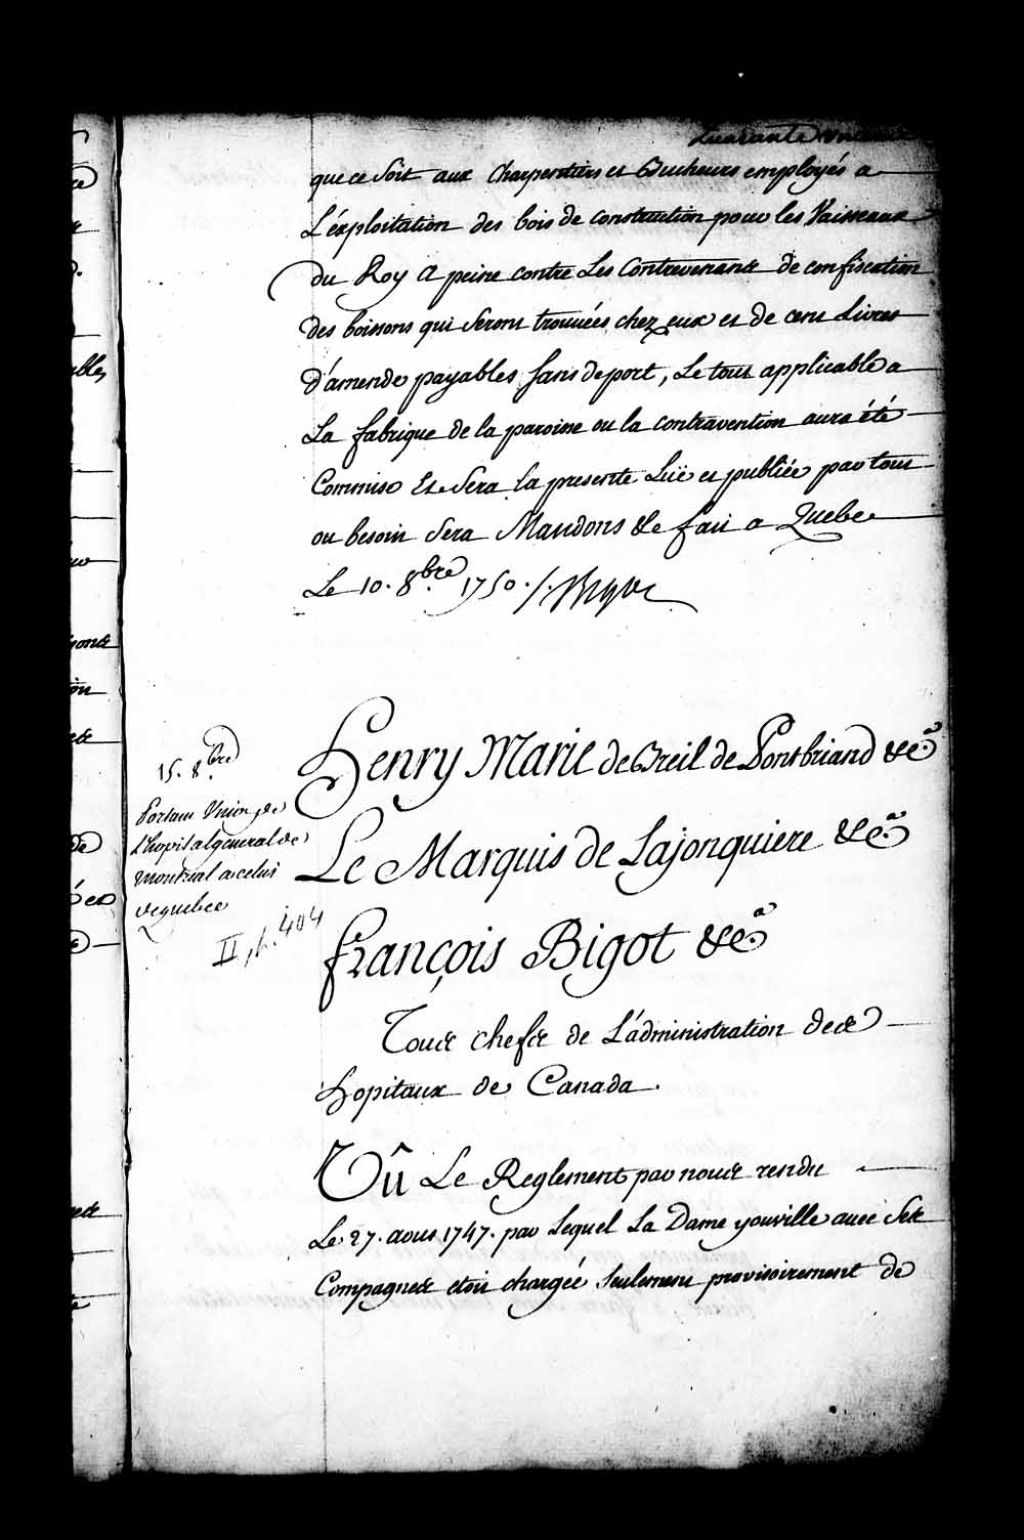 Quarante
que ce Soit aux Charpentiers et Bucheurs employés a
L'éxploitation des bois de construction pour les Vaisseaux
du Roy a peine contre Les Contrevenans de confiscation
des boissons qui Seront trouvées chez eux et de cent Livres
d'amende payables sans deport, Le tout applicable a
La fabrique de la paroisse ou la contravention aura été
Commise Et Sera la presente Luë et publiée par tout
ou besoin Sera Mandons &c fait a Quebec
Le 10. 8.bre 1750. /. Bigot
15. 8.bre
Portant Union de
L'hopital general de
montreal a celui
de quebec
II, p. 404
Henry Marie de Breil de Pontbriand &ca
Le Marquis de Lajonquiere &ca
François Bigot &ca
Tous chefs de L'administration des
hopitaux de Canada.
Vû Le Reglement par nous rendu
Le 27. aout 1747. par Lequel La Dame youville avec Ses
Compagnes etoit chargée Seulement provisoirement de